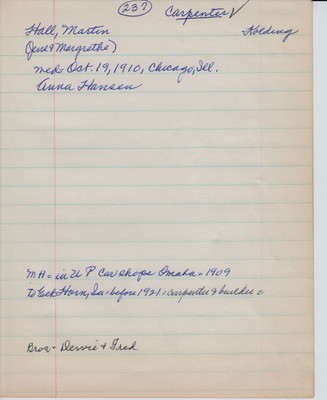 (237) Carpenter ✓
Hall, Martin Kolding
(Jens & Margrethe)
md= Oct. 19, 1910, Chicago, Ill.
Anna Hansen
MH= in U P Car shops Omaha = 1909
to Elk Horn, Ia= before 1921 = carpenter & builder =
Bros= & Fred